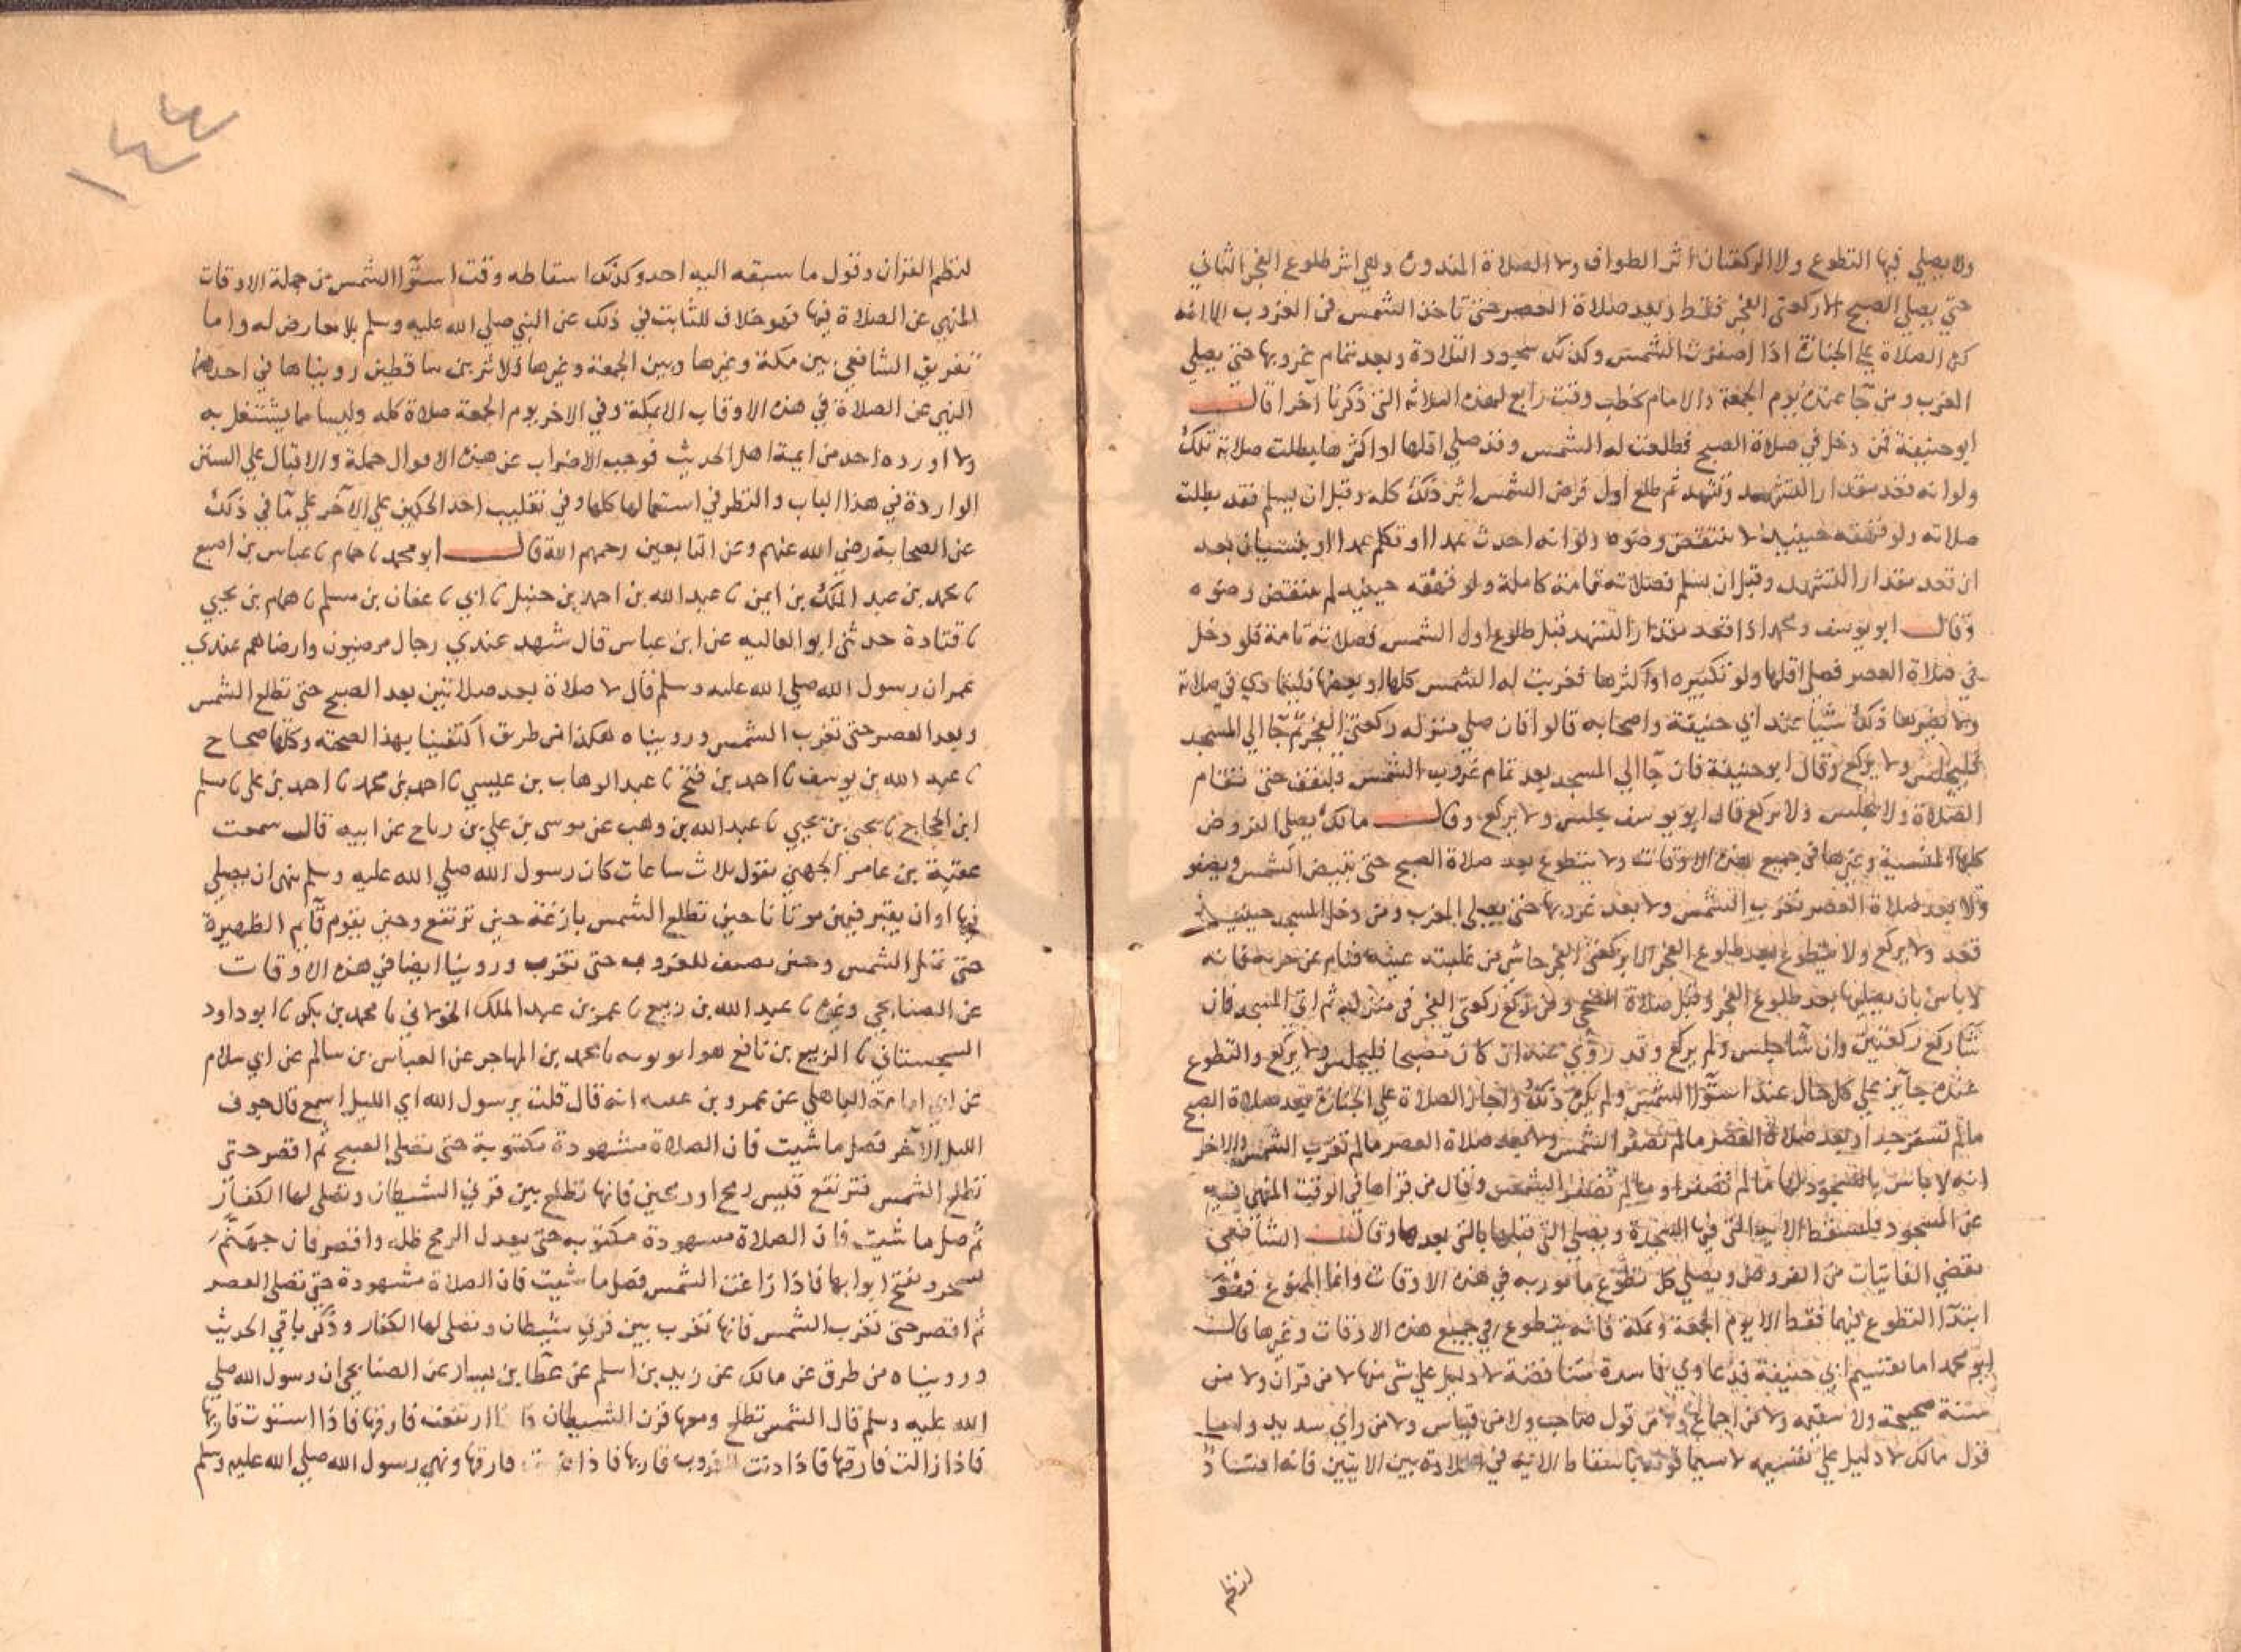 ولا يصلي فيها التطوع ولا الركعتان اثر الطواف ولا الصلاة المنذورة وهي اثر طلوع الفجر الثاني
حتي يصلي الصبح الا ركعتي الفجر فقط وبعد صلاة العصر حتى تاخذ الشمس في الغروب الا انه
كره الصلاة علي الجنازة اذا اصفرت الشمس وكذلك سجود التلاوة وبعد تمام غروبها حتى يصلي
المغرب ومن جا يوم الجمعة والامام يخطب وقت رابع لهذه الثلاثه التي ذكرنا آخرا قال
ابو حنيفة فمن دخل في صلاة الصبح فطلعت له الشمس وقد صلي اقلها او اكثرها بطلت صلاته تلك
ولو انه قعد مقدار التشهد وتشهد ثم طلع اول قرص الشمس اثر ذلك كله وقبل ان يسلم فقد بطلت
صلاته ولو قهقه حينيذ لا ينتقض وضوه ولو انه احدث عمدا او تكلم عمدا او بنسيان بعد
ان قعد مقدار التشهد وقبل ان يسلم فصلاته تامة كاملة ولو قهقه حينيذ لم ينتقض وضوه
وقال ابو يوسف ومحمد اذا قعد مقدار التشهد قبل طلوع اول الشمس فصلاته تامة فلو دخل
في صلاة العصر فصلي اقلها ولو تكبيره او اكثرها فغربت له الشمس كلها او بعضها فليتمادي في صلاته
ولا يضرها ذلك شيا عند ابي حنيفة واصحابه قالوا فان صلي منزله ركعتي الفجر ثم جا الي المسجد
فليجلس ولا يركع وقال ابو حنيفة فان جا الي المسجد بعد تمام غروب الشمس فليقف حتى تقام
الصلاة ولا يجلس ولا يركع قال ابو يوسف يجلس ولا يركع وقال مالك يصلي الفروض
كلها المنسية وغيرها في جميع هذه الاوقات ولا يتطوع بعد صلاة الصبح حتى تبيض الشمس ويصفو
ولا بعد صلاة العصر تغرب الشمس ولا بعد غروبها حتى يصلي المغرب ومن دخل المسجد حينيذ
قعد ولا يركع ولا يتطوع بعد طلوع الفجر الا بركعتي الفجر حاش من غلبته عينه فنام عن حزبه فانه
لا باس بان يصليه بعد طلوع الفجر وقبل صلاة الصبح ومن ركع ركعتي الفجر في منزله ثم اتي المسجد فان
شا ركع ركعتين وان شا جلس ولم يركع وقد روي عنه ان كان مصبحا فليجلس ولا يركع والتطوع
عنده جايز علي كل حال عند استوا الشمس ولم يكره ذلك واجاز الصلاة علي الجنازة بعد صلاة الصبح
مالم تسفر جدا وبعد صلاة العصر مالم تصفر الشمس صلاة العصر مالم تغرب الشمس والاخر
انه لا باس بالسجود لها مالم تصفر ومالم تصفر الشمس وقال من قراها في الوقت المنهي فيه
عن السجود فليسقط الايه التي فيها السجدة ويصلي التي قبلها بالتي بعدها وقال الشافعي
يقضي الفايتات من الفروض ويصلي كل تطوع مامور به في هذه الاوقات وانما الممنوع فهو
ابتدا التطوع فيها فقط الا يوم الجمعة وبمكة فانه يتطوع في جميع هذه الاوقات وغيرها قال
ابو محمد اما تقسيم ابي حنيفة فدعاوي فاسدة متناقضة لا دليل علي شي منها لا من قران ولا من
سنة صحيحة ولا سقيمه ولا من اجماع ولا من قول صاحب ولا من قياس ولا من راي سديد واما
قول مالك لا دليل علي تقسيمه لا سيما قوله باسقاط الاية في التلاوة بين الايتين فانه افساد
لنظم
١٤٤
لنظم القران وقول ما سبقه اليه احد وكذلك اسقاطه وقت استوا الشمس من جملة الاوقات
المنهي عن الصلاة فيها فهو خلاف للثابت في ذلك عن النبي صلي الله عليه وسلم بلا معارض له واما
تفريق الشافعي بين مكة وغيرها وبين الجمعة وغيرها فلاثرين ساقطين رويناها في احدهما
النهي عن الصلاة في هذه الاوقات الا بمكة وفي الاخر يوم الجمعة صلاة كله وليسا مما يشتغل به
ولا اورده احد من ايمة اهل الحديث فوجب الاضراب عن هذه الاقوال جملة والاقبال علي السنن
الواردة في هذا الباب والنظر في استعمالها كلها وفي تغليب احد الحكمين علي الاخر علي ما في ذلك
عن الصحابة رضي الله عنهم وعن التابعين رحمهم الله قال ابو محمد نا حمام نا عباس بن اصبغ
نا محمد بن عبد الملك بن ايمن نا عبد الله بن احمد بن حنبل نا ابي نا عفان بن مسلم نا همام بن يحيي
نا قتادة حدثني ابو العاليه عن ابن عباس قال شهد عندي رجال مرضيون وارضاهم عندي
عمر ان رسول الله صلي الله عليه وسلم قال لا صلاة بعد صلاتين بعد الصبح حتى تطلع الشمس
وبعد العصر حتى تغرب الشمس ورويناه هكذا من طرق اكتفينا بهذا لصحته وكلها صحاح
نا عبد الله بن يوسف نا احمد بن فتح نا عبد الوهاب بن عيسي نا احمد بن محمد نا احمد بن علي نا مسلم
ابن الحجاج نا يحيى بن يحيي نا عبد الله بن وهب عن موسى بن علي بن رباح عن ابيه قال سمعت
عقبة بن عامر الجهني يقول ثلاث ساعات كان رسول الله صلي الله عليه وسلم ينهى ان يصلي
فيها او ان يقبر فيهن موتانا حين تطلع الشمس بازغة حتى ترتفع وحين يقوم قايم الظهيرة
حتى تميل الشمس وحين تضيف للغروب حتى تغرب وروينا ايضا في هذه الاوقات
عن الصنابحي وغيره نا عبد الله بن ربيع نا عمر بن عبد الملك الخولاني نا محمد بن بكر نا ابو داود
السجستاني نا الربيع بن نافع هو ابو توبه نا محمد بن المهاجر عن العباس بن سالم عن ابي سلام
عن ابي امامة الباهلي عن عمرو بن عبسه انه قال قلت يرسول الله اي الليل اسمع قال جوف
الليل الآخر فصل ما شيت فان الصلاة مشهودة مكتوبة حتى تصلي الصبح ثم اقصر حتى
تطلع الشمس فترتفع قيس رمح او رمحين فانها تطلع بين قرني الشيطان وتصلي لها الكفار
ثم صل ما شيت فان الصلاة مشهودة مكتوبه حتى يعدل الرمح ظله واقصر فان جهنم
تسجر وتفتح ابوابها فاذا زاغت الشمس فصل ما شيت فان الصلاة مشهودة حتى تصلي العصر
ثم اقصر حتى تغرب الشمس فانها تغرب بين قرني شيطان وتصلي لها الكفار وذكر باقي الحديث
ورويناه من طرق عن مالك عن زيد بن اسلم عن عطا بن يسار عن الصنابحي ان رسول الله صلي
الله عليه وسلم قال الشمس تطلع ومعها قرن الشيطان فاذا ارتفعت فارقها فاذا استوت قارنها
فاذا زالت فارقها فاذا دنت للغروب قارنها فاذا غربت فارقها ونهي رسول الله صلي الله عليه وسلم